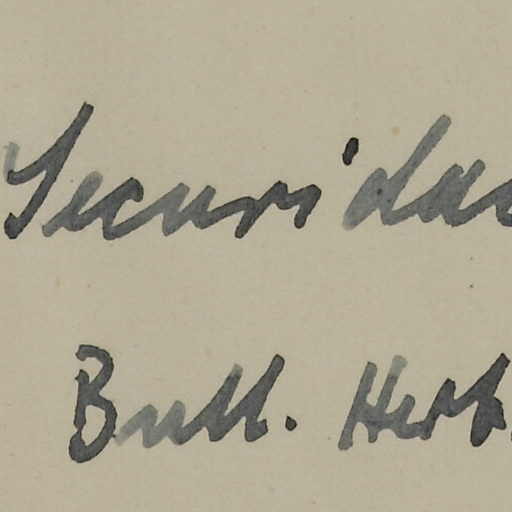 Securidac
Bull. Herb.